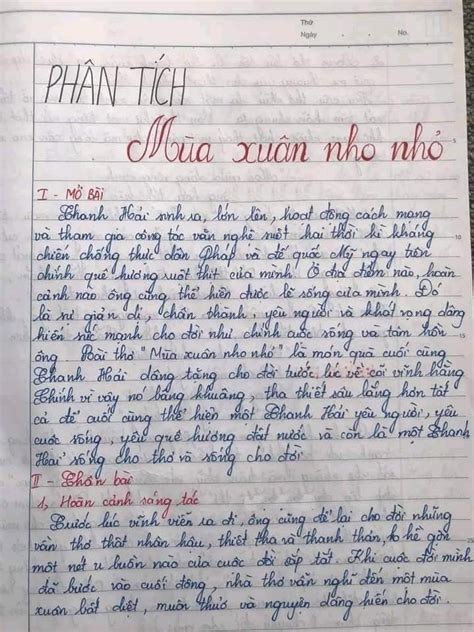 Thứ
Ngày
No.
PHÂN TÍCH
Mùa xuân nho nhỏ
I - MỞ BÀI
Thanh Hải sinh ra, lớn lên, hoạt động cách mạng
và tham gia công tác văn nghệ suốt hai thời kì kháng
chiến chống thực dân Pháp và đế quốc Mỹ ngay trên
chính quê hương ruột thịt của mình. Ở địa điểm nào, hoàn
cảnh nào ông cũng thể hiện được lẽ sống của mình. Đó
là sự giản dị, chân thành, yêu người và khát vọng dâng
hiến sức mạnh cho đời như chính cuộc sống và tâm hồn
ông. Bài thơ "Mùa xuân nho nhỏ" là món quà cuối cùng
Thanh Hải dâng tặng cho đời trước lúc về cõi vĩnh hằng
Chính vì vậy nó bâng khuâng, tha thiết sâu lắng hơn tất
cả để cuối cùng thể hiện một Thanh Hải yêu người, yêu
cuộc sống, yêu quê hương đất nước và còn là một Thanh
Hải sống cho thơ và sống cho đời
II - Thân bài
1, Hoàn cảnh sáng tác
Trước lúc vĩnh viễn ra đi, ông cũng để lại cho đời những
vần thơ thật nhân hậu, thiết tha và thanh thản, ko hề gợn
một nét u buồn nào của cuộc đời sắp tắt. Khi cuộc đời mình
đã bước vào cuối đông, nhà thơ vẫn nghĩ đến một mùa
xuân bất diệt, muôn thuở và nguyện dâng hiến cho đời.